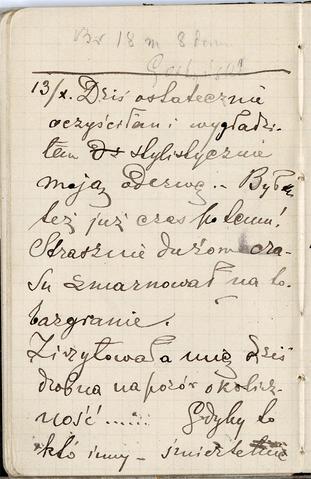 Br 18 m 8
13/X. Dziś ostatecznie
oczyściłam i wygładzi-
łam stylistycznie
moją odezwę. – Był
też już czas po temu!
Strasznie dużom cza-
su zmarnowała na to
bazgranie.
Zirytowała mię dziś
drobna napozór okolicz-
ność ...... Gdyby to
kto inny – śmiertelnie